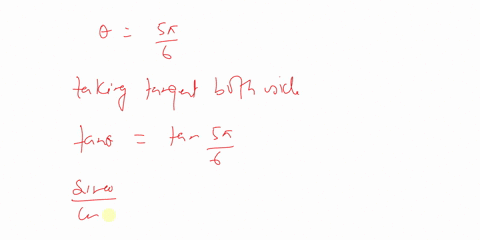 θ = 5π/6
taking tangent both side
tanθ = tan 5π/6
sinθ/co